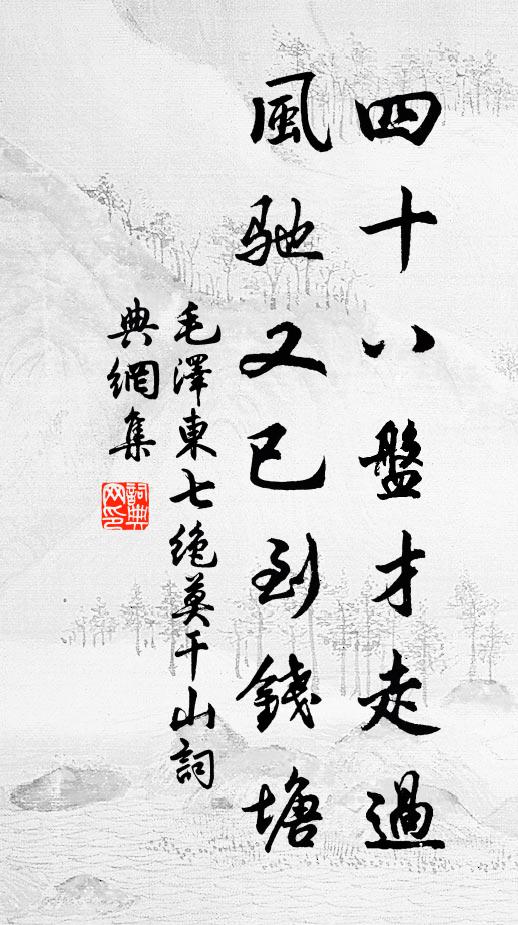 四十八盤才走過
風驰又已到錢塘
毛澤東七绝莫干山詞
典網集
詞典
网印